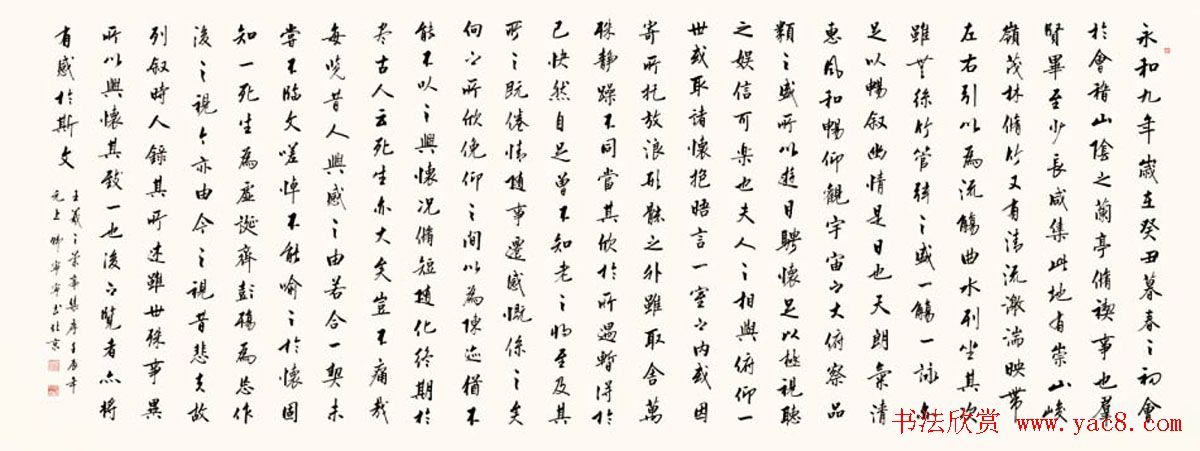 永和九年歲在癸丑暮春之初會
於會稽山陰之蘭亭脩禊事也羣
賢畢至少長咸集此地有崇山峻
嶺茂林脩竹又有清流激湍映帶
左右引以為流觴曲水列坐其次
雖無絲竹管弦之盛一觴一詠亦
足以暢敘幽情是日也天朗氣清
惠風和暢仰觀宇宙之大俯察品
類之盛所以遊目騁懷足以極視聽
之娛信可樂也夫人之相與俯仰一
世或取諸懷抱晤言一室之內或因
寄所托放浪形骸之外雖取舍萬
殊靜躁不同當其欣於所遇暫得於
己快然自足曾不知老之將至及其
所之既倦情隨事遷感慨係之矣
向之所欣俛仰之間以為陳迹猶不
能不以之興懷況脩短隨化終期於
盡古人云死生亦大矣豈不痛哉
每覽昔人興感之由若合一契未
嘗不臨文嗟悼不能喻之於懷固
知一死生為虛誕齊彭殤為妄作
後之視今亦由今之視昔悲夫故
列敘時人錄其所述雖世殊事異
所以興懷其致一也後之覽者亦將
有感於斯文
王羲之蘭亭集序
书法欣赏 www.yac8.com